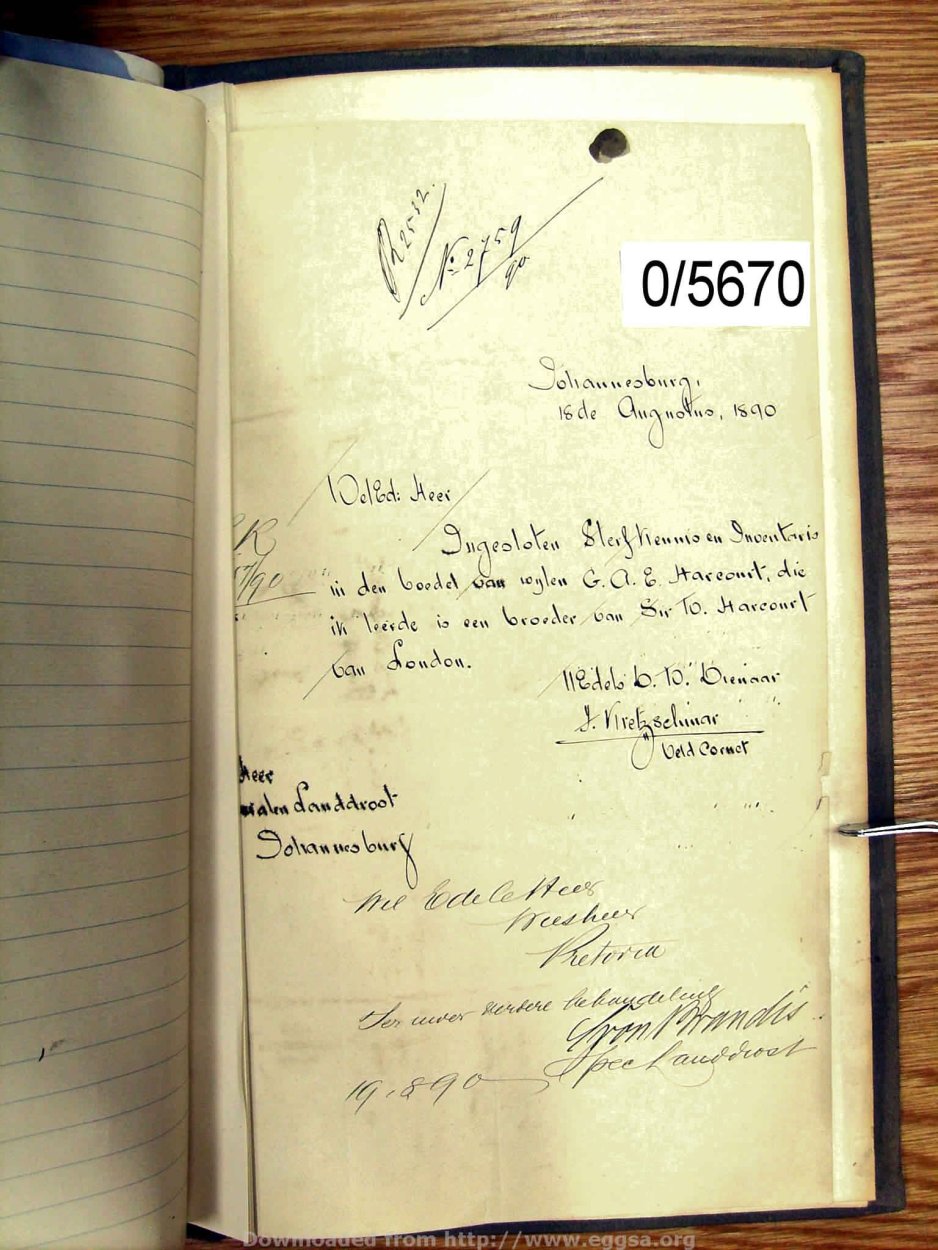 R2532.
No. 2759
90
0/5670
Johannesburg,
18de Augustus, 1890
WelEd: Heer
Ingesloten Sterfkennis en Inventaris
in den boedel van wylen G. A. E. Harcourt, die
ik leerde is een broeder van Sir W. Harcourt
van London.
UEdele D. W. Dienaar
Kretzschmar
Veld Cornet
Heer
Landdrost
Johannesburg
Wel Edele Heer
Weesheer
Pretoria
Ter uwer verdere behandeling
von Brandis
Spec Landdrost
19.8.90
Downloaded from http://www.eggsa.org